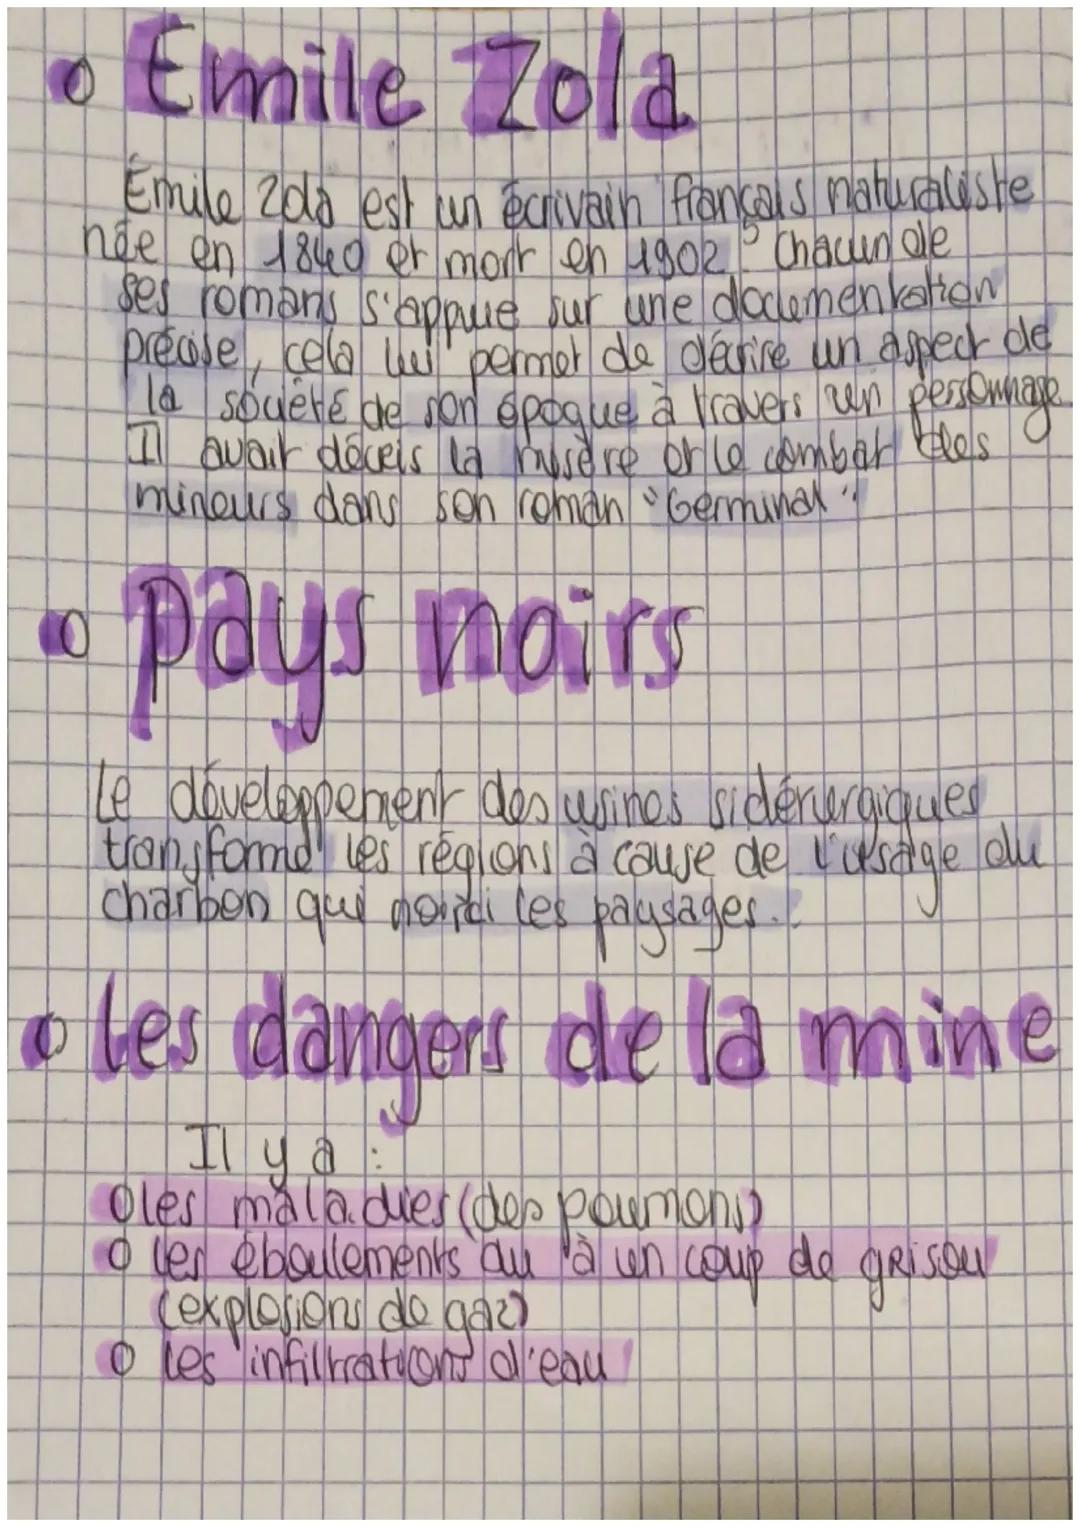 o Emile Zola
Émile Zola est un écrivain français naturaliste
née en 1840 et mort en 1902. Chacun de
ses romans s'appuie sur une documentation
précise, cela lui permet de décrire un aspect de
la société de son époque à travers un personnage.
Il avait décris la misère et le combat des
mineurs dans son roman "Germinal".
o pays noirs
Le développement des usines sidérurgiques
transforme les régions à cause de l'usage du
charbon qui noirci les paysages.
o les dangers de la mine
Il y a :
o les maladies (des poumons)
o les éboulements du à un coup de grisou
(explosions de gaz)
o les infiltrations d'eau